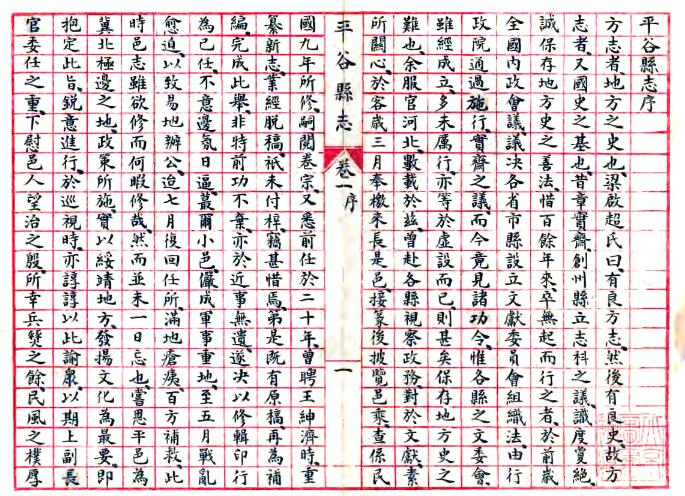 平谷縣志序
方志者、地方之史也、梁啟超氏曰、有良方志、然後有良史、故方
志者、又國史之基也、昔章實齋、創州縣立志科之議、識度夐絕、
誠保存地方史之善法、惜百餘年來、卒無起而行之者、於前歲
全國內政會議、議決各省市縣設立文獻委員會組織法、由行
政院通過施行、實齋之議、而今竟見諸功令、惟各縣之文委會、
雖經成立、多未厲行、亦等於虛設而已、則甚矣保存地方史之
難也、余服官河北、數載於茲、曾赴各縣視察政務、對於文獻、素
所關心、於客歲三月奉檄來長是邑、接篆後披覽邑乘、查係民
平谷縣志 卷一 序 一
國九年所修、嗣閱卷宗、又悉前任於二十年、曾聘王紳濟時、重
纂新志、業經脫稿、祇未付梓、竊甚惜焉、第是既有原稿、再為補
編、完成此舉、非特前功不棄、亦於近事無遺、遂決以修輯印行
為己任、不意邊氛日逼、蕞爾小邑、儼成軍事重地、至五月戰亂
愈迫、以致易地辦公、迨七月後回任所、滿地瘡痍、百方補救、此
時邑志雖欲修而何暇修哉、然而並未一日忘也、嘗思平邑為
冀北極邊之地、政策所施、實以綏靖地方、發揚文化為最要、即
抱定此旨、銳意進行、於巡視時、亦諄諄以此諭衆、以期上副長
官委任之重、下慰邑人望治之殷、所幸兵燹之餘、民風之樸厚